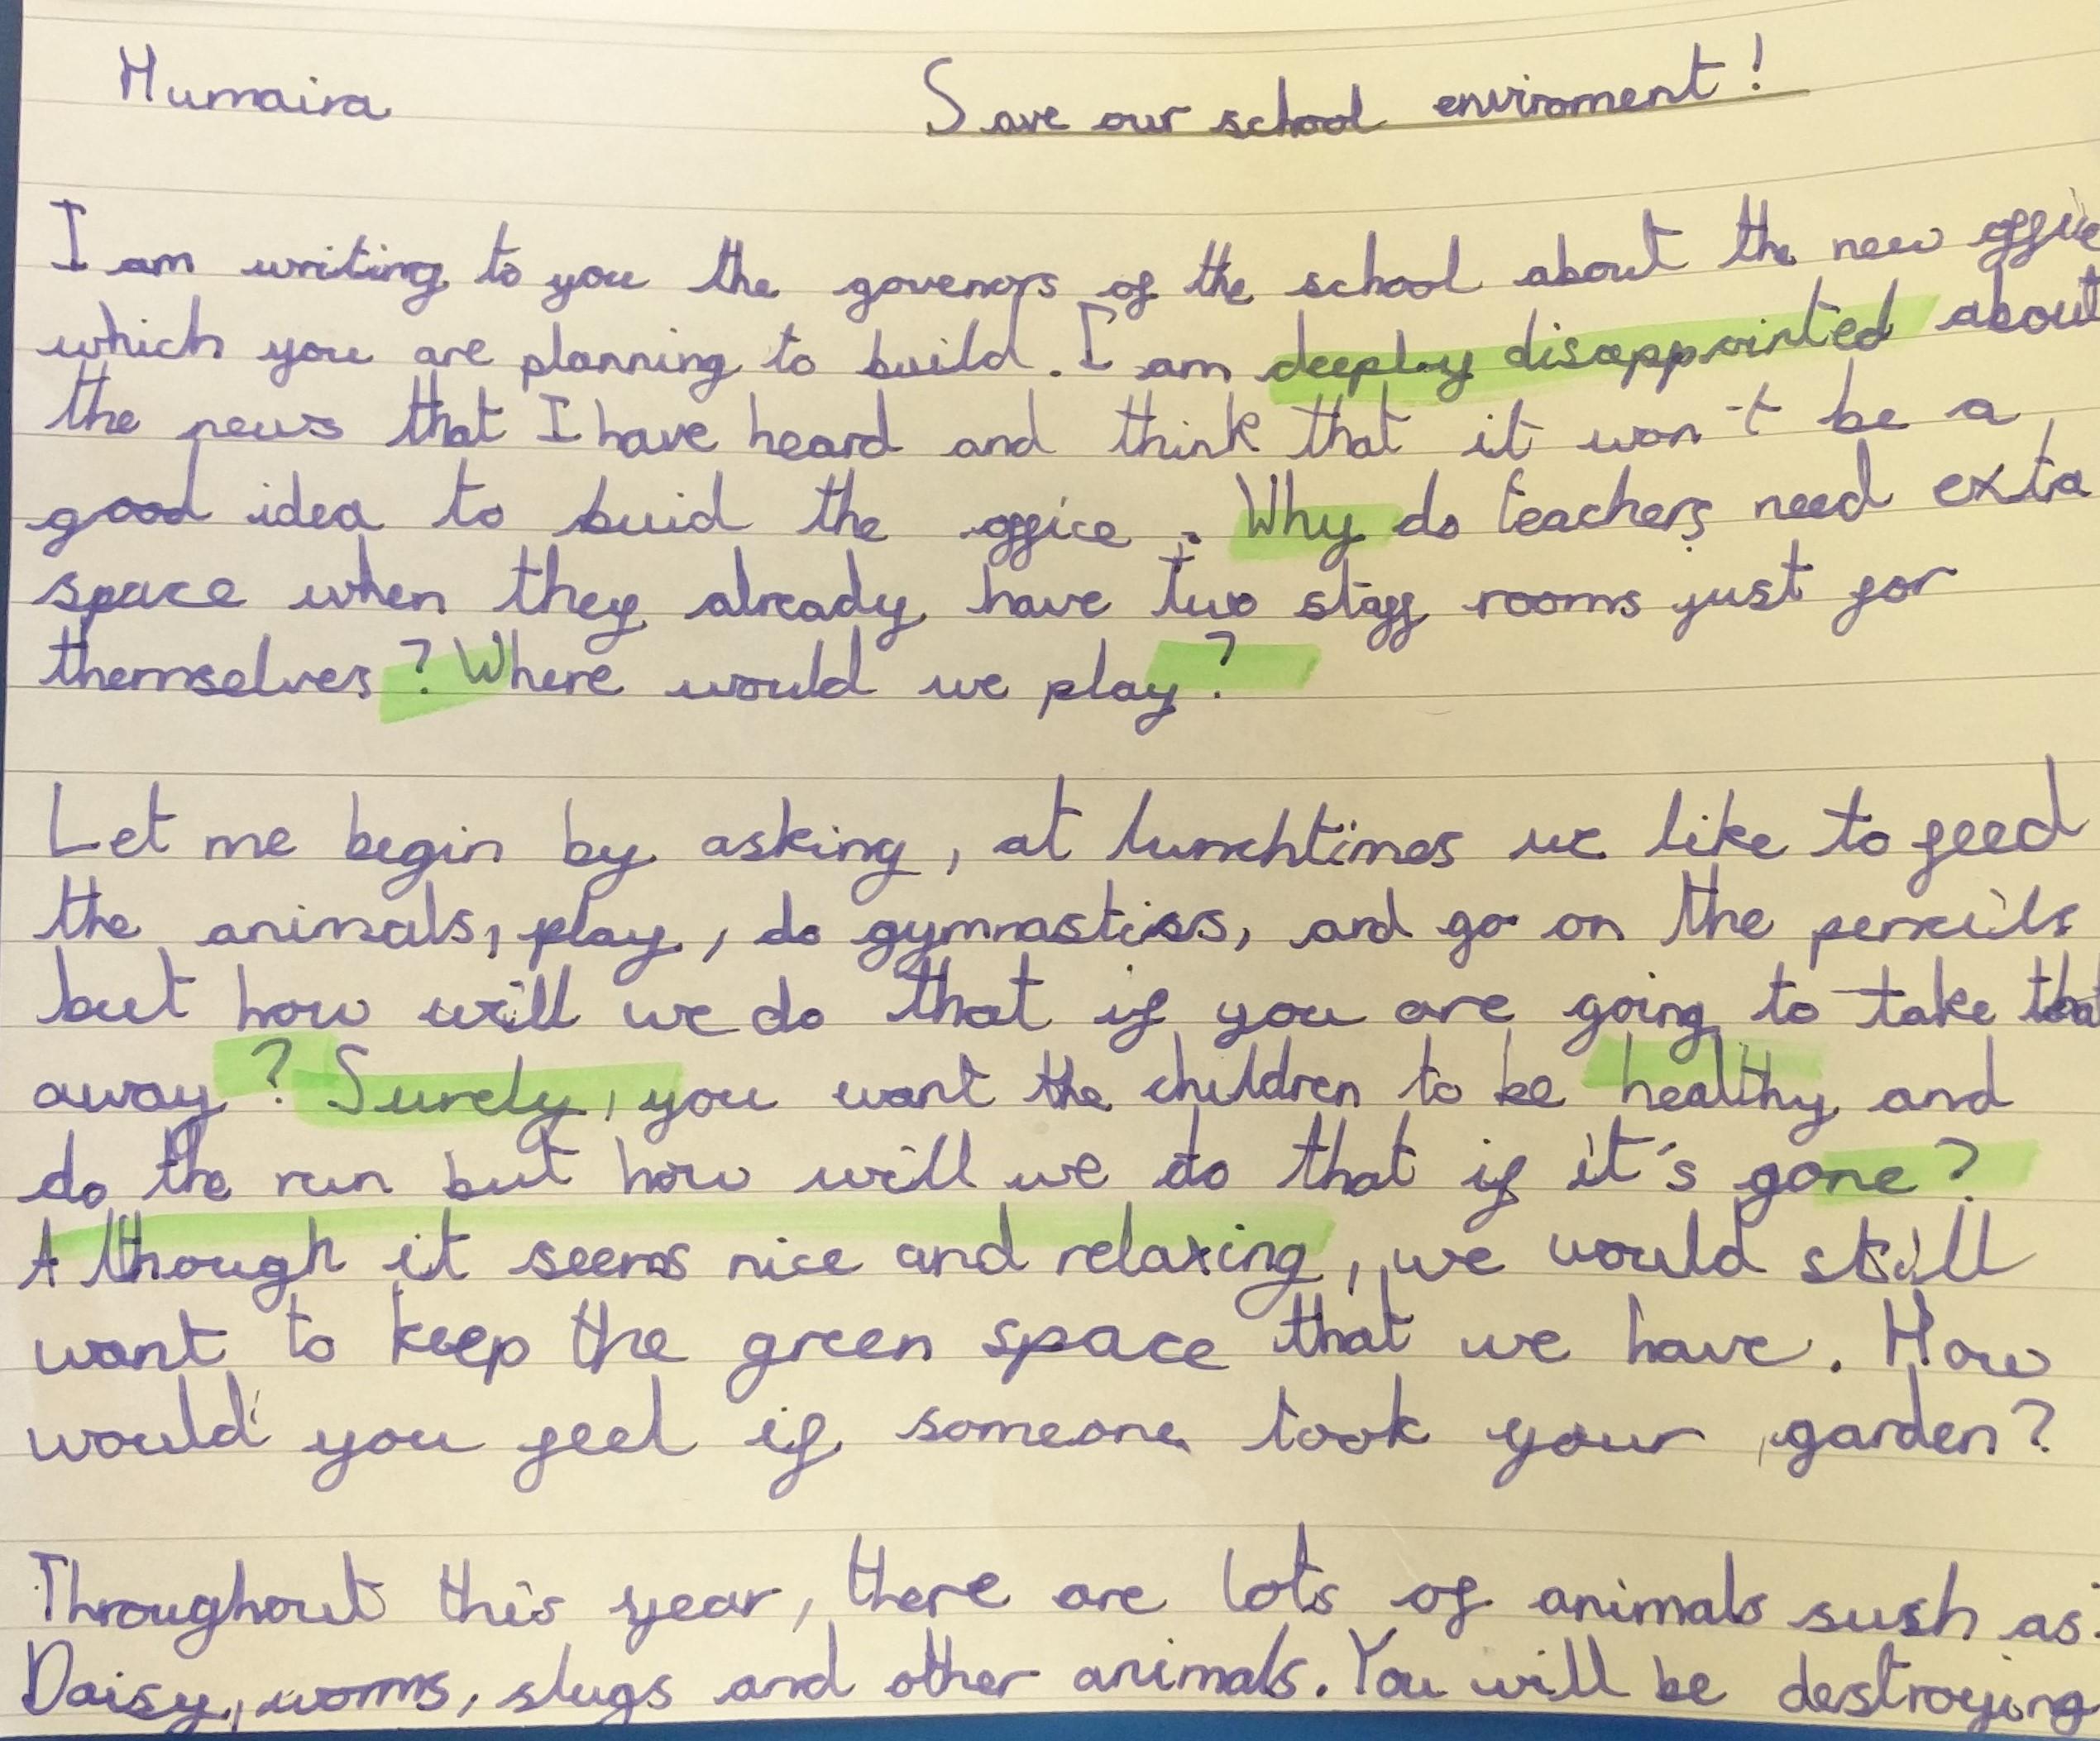 Humaira Save our school enviroment!
I am writing to you the govenors of the school about the new office
which you are planning to build. I am deeploy disappointed about
the news that I have heard and think that it won't be a
good idea to buid the office. Why do teachers need exta
space when they already have two staff rooms just for
themselves? Where would we play?
Let me begin by asking, at lunchtimes we like to feed
the animals, play, do gymnastics, and go on the pencils
but how will we do that if you are going to take that
away? Surely, you want the children to be healthy and
do the run but how will we do that if it's gone?
Although it seems nice and relaxing, we would still
want to keep the green space that we have. How
would you feel if someone took your garden?
Throughout this year, there are lots of animals sush as
Daisy, worms, slugs and other animals. You will be destroying